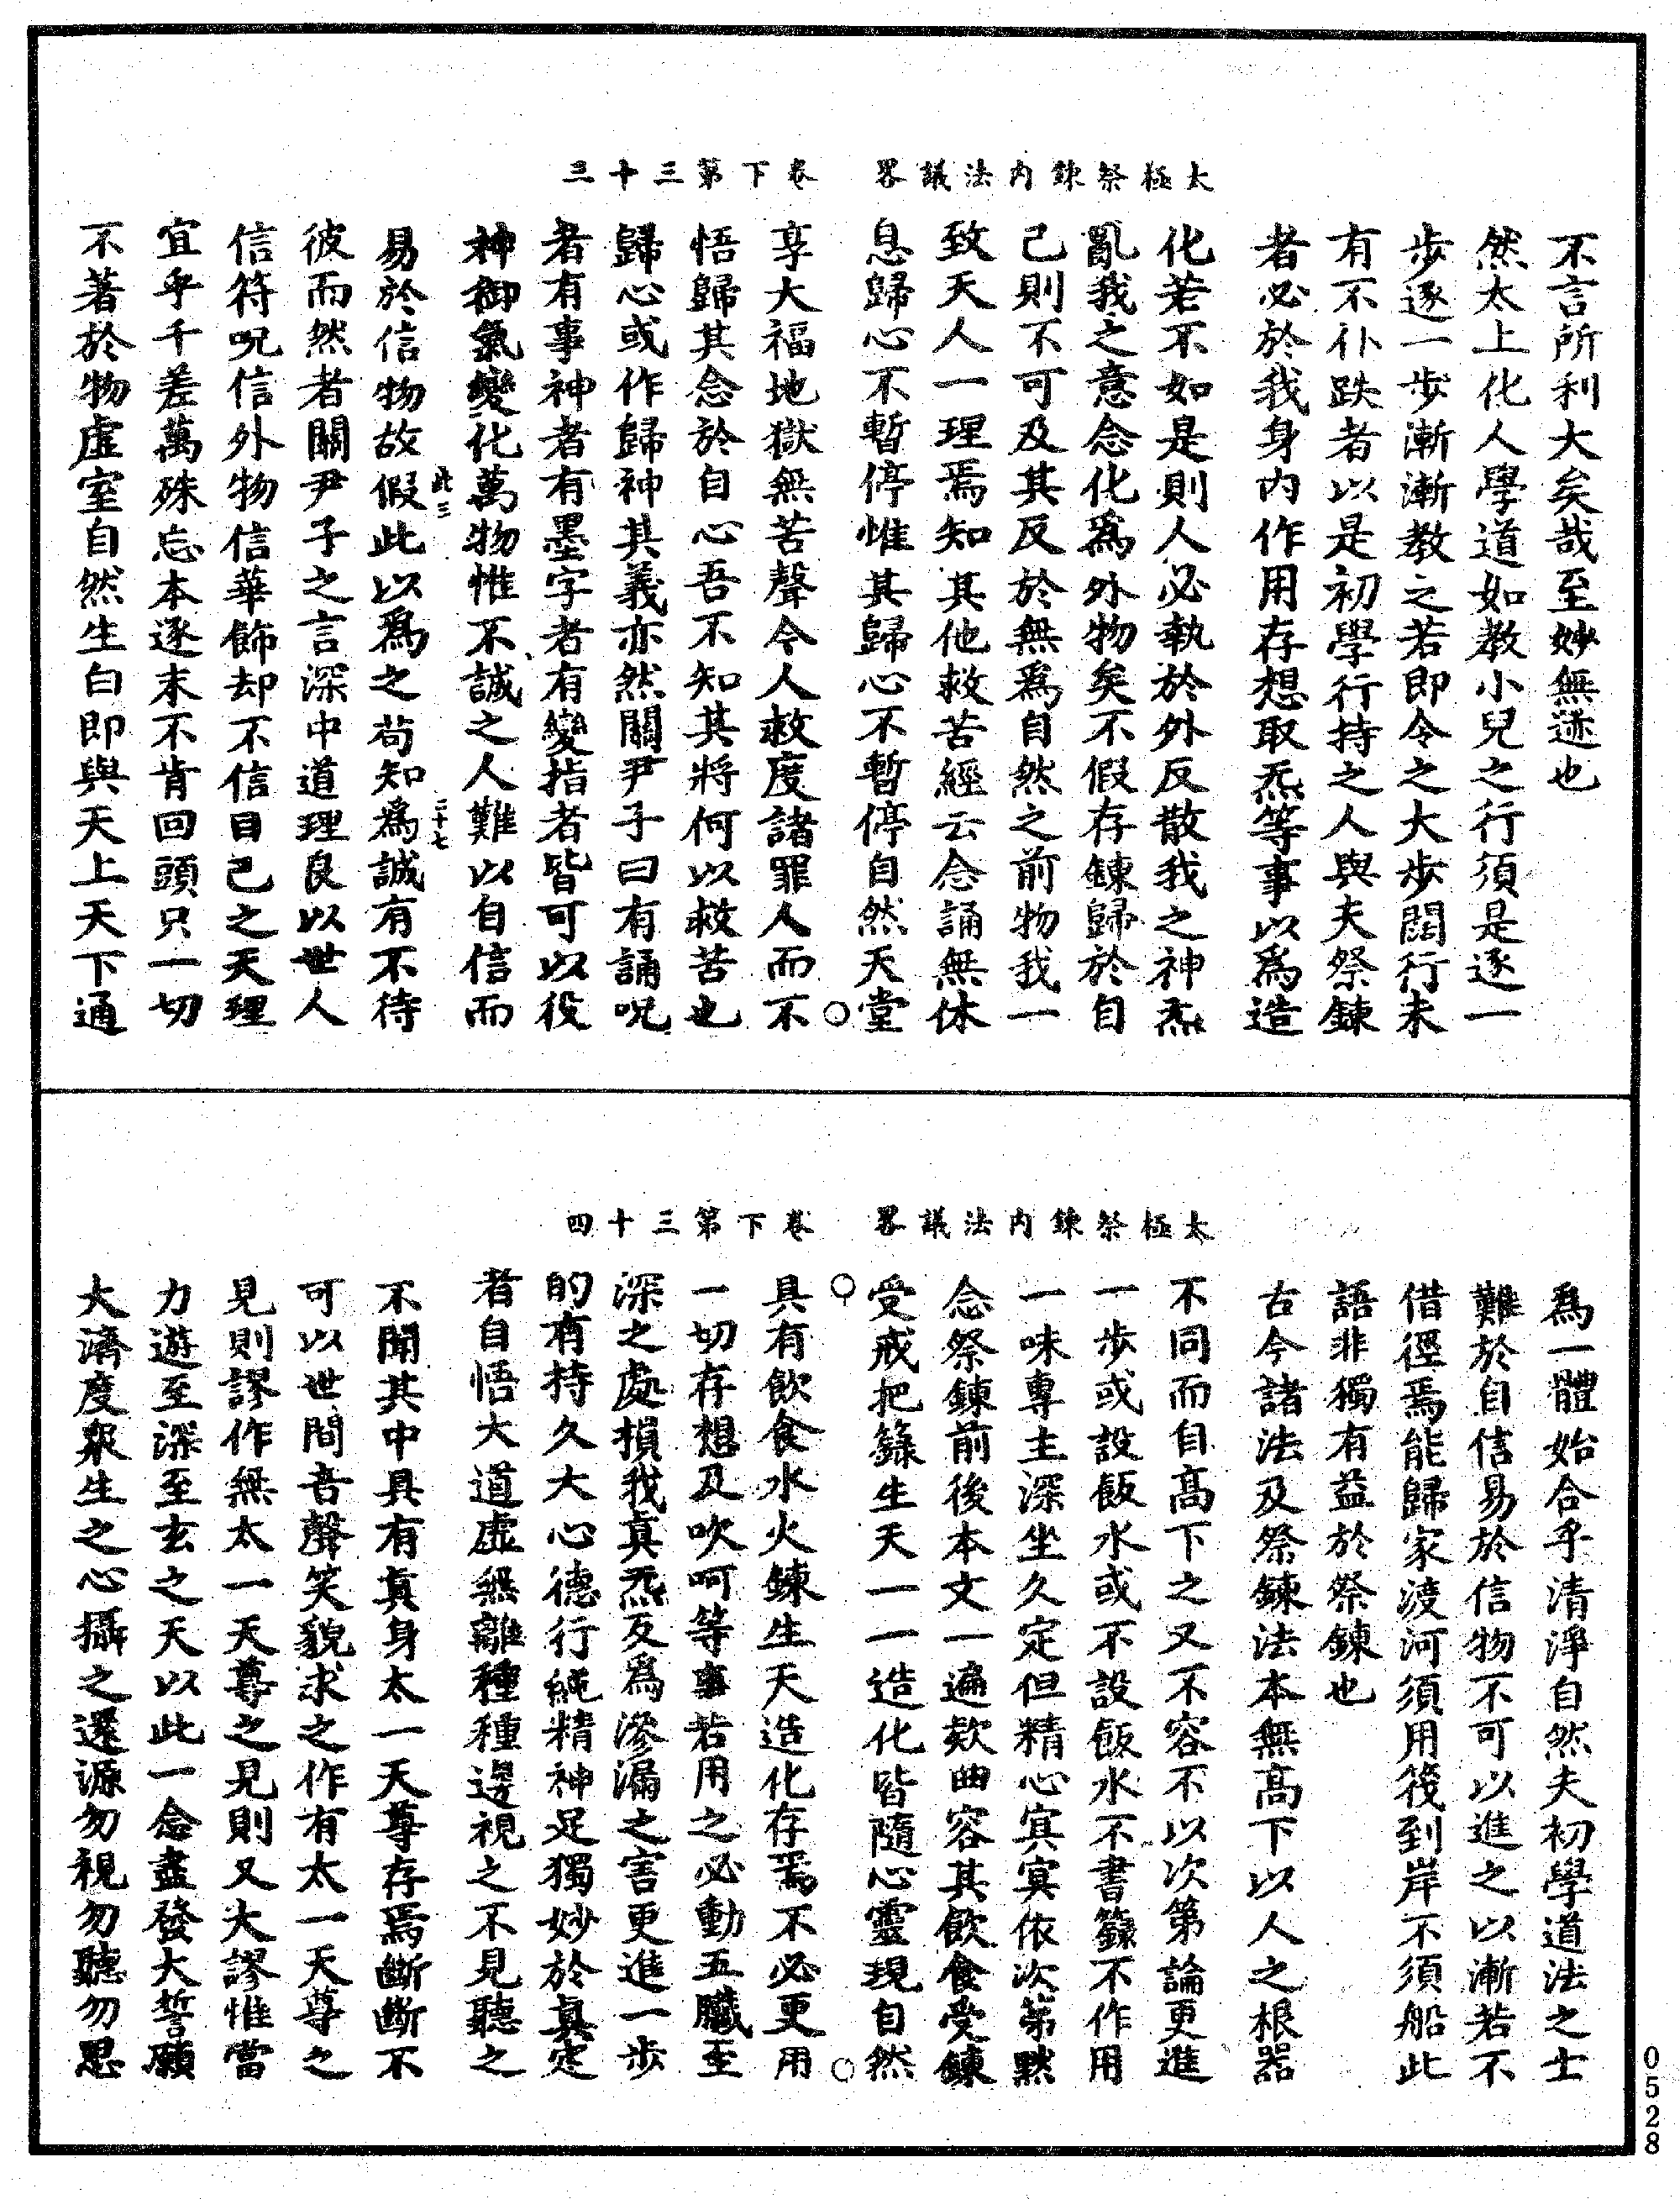 太極祭鍊内法議畧　卷下第三十三
不言所利大矣哉至妙無迹也
然太上化人學道如教小兒之行須是逐一
步逐一步漸漸教之若即令之大步闊行未
有不仆跌者以是初學行持之人與夫祭鍊
者必於我身内作用存想取炁等事以爲造
化若不如是則人必執於外反散我之神炁
亂我之意念化爲外物矣不假存鍊歸於自
己則不可及其反於無爲自然之前物我一
致天人一理焉知其他救苦經云念誦無休
息歸心不暫停惟其歸心不暫停自然天堂
享大福地獄無苦聲令人救度諸罪人而不
悟歸其念於自心吾不知其將何以救苦也
歸心或作歸神其義亦然關尹子曰有誦呪
者有事神者有墨字者有變指者皆可以役
神御氣變化萬物惟不誠之人難以自信而
易於信物故假此以爲之苟知爲誠有不待
此三
二十七
彼而然者關尹子之言深中道理良以世人
信符呪信外物信華飾却不信目己之天理
宜乎千差萬殊忘本逐末不肯回頭只一切
不著於物虛室自然生白即與天上天下通
太極祭鍊内法議畧　卷下第三十四
爲一體始合乎清淨自然夫初學道法之士
難於自信易於信物不可以進之以漸若不
借徑焉能歸家渡河須用筏到岸不須船此
語非獨有益於祭鍊也
古今諸法及祭鍊法本無高下以人之根器
不同而自高下之又不容不以次第論更進
一步或設飯水或不設飯水不書籙不作用
一味專主深坐久定但精心寞寞依次第黙
念祭鍊前後本文一遍欵曲容其飲食受鍊
受戒把籙生天一一造化皆隨心靈現自然
具有飲食水火鍊生天造化存焉不必更用
一切存想及吹呵等事若用之必動五臟至
深之處損我真炁反爲滲漏之害更進一步
的有持久大心德行純精神足獨妙於真定
者自悟大道虛無離種種邊視之不見聽之
不聞其中具有真身太一天尊存焉斷斷不
可以世間音聲笑貌求之作有太一天尊之
見則謬作無太一天尊之見則又大謬惟當
力遊至深至玄之天以此一念盡發大誓願
大濟度衆生之心攝之還源勿視勿聽勿思
0528